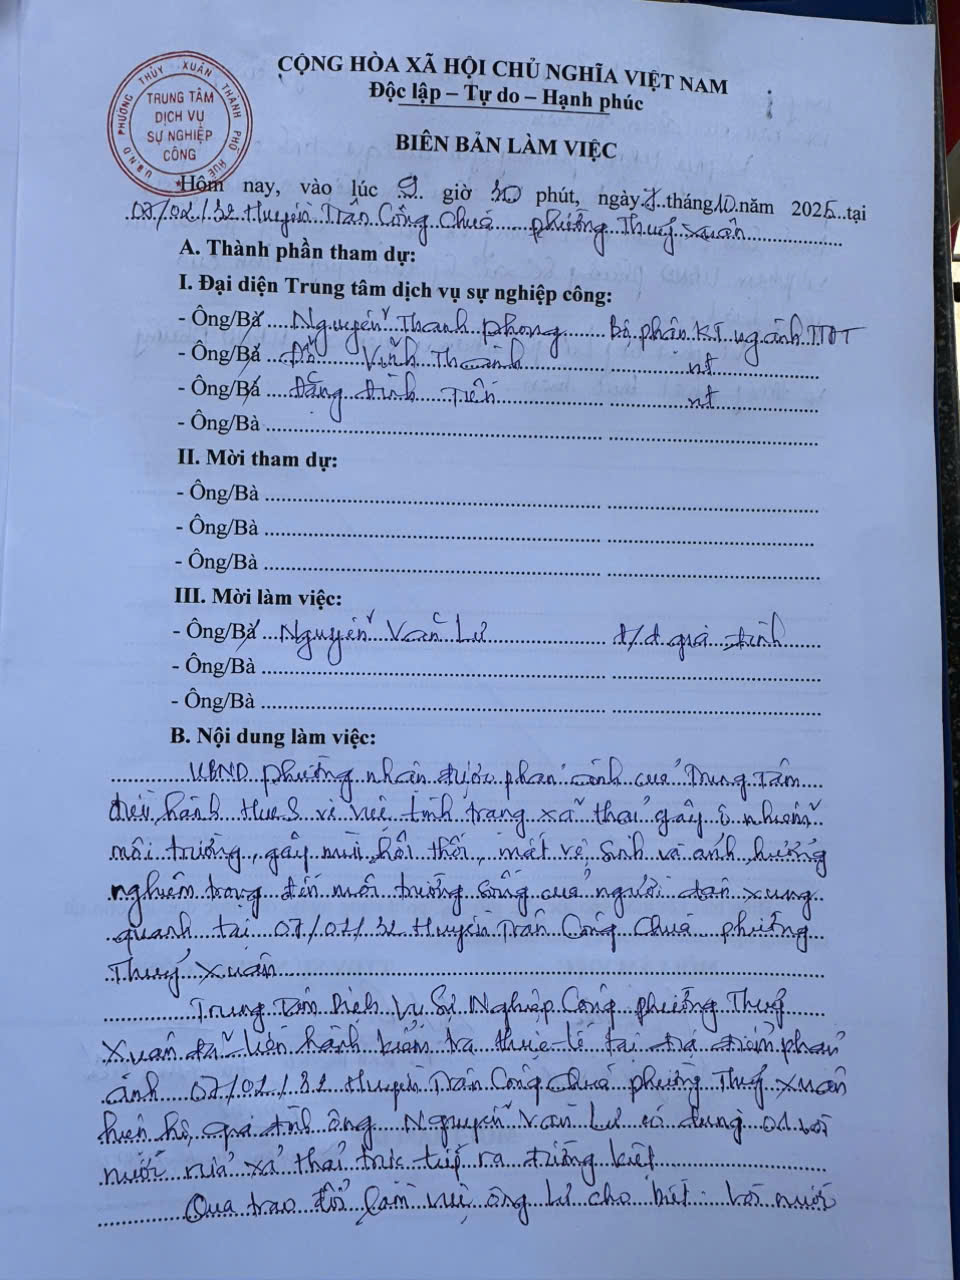 U.B.N.D PHƯỜNG THỦY XUÂN THÀNH PHỐ HUẾ
TRUNG TÂM
DỊCH VỤ
SỰ NGHIỆP
CÔNG
CỘNG HÒA XÃ HỘI CHỦ NGHĨA VIỆT NAM
Độc lập – Tự do – Hạnh phúc
BIÊN BẢN LÀM VIỆC
Hôm nay, vào lúc 9 giờ 30 phút, ngày 7 tháng 10 năm 2025 tại
07/02/32 Huyền Trân Công Chúa phường Thuỷ Xuân
A. Thành phần tham dự:
I. Đại diện Trung tâm dịch vụ sự nghiệp công:
- Ông/Bà Nguyễn Thanh Phong Bộ phận KT ngành TTĐT
- Ông/Bà Đỗ Vĩnh Thành nt
- Ông/Bà Đặng Đình Tiến nt
- Ông/Bà
II. Mời tham dự:
- Ông/Bà
- Ông/Bà
- Ông/Bà
III. Mời làm việc:
- Ông/Bà Nguyễn Văn Lư đ/d gia đình
- Ông/Bà
- Ông/Bà
B. Nội dung làm việc:
UBND phường nhận được phản ánh của Trung Tâm
điều hành Hue S về việc tình trạng xã thải gây ô nhiễm
môi trường, gây mùi hôi thối, mất vệ sinh và ảnh hưởng
nghiêm trọng đến môi trường sống của người dân xung
quanh tại 07/02/32 Huyền Trân Công Chúa phường
Thuỷ Xuân
Trung Tâm Dịch Vụ Sự Nghiệp Công phường Thuỷ
Xuân đã tiến hành kiểm tra thực tế tại địa điểm phản
ánh 07/02/32 Huyền Trân Công Chúa phường Thuỷ Xuân
hiện hộ gia đình ông Nguyễn Văn Lư có dùng vòi
nước rửa xả thải trực tiếp ra đường kiệt
Qua trao đổi làm việc ông Lư cho biết vòi nước